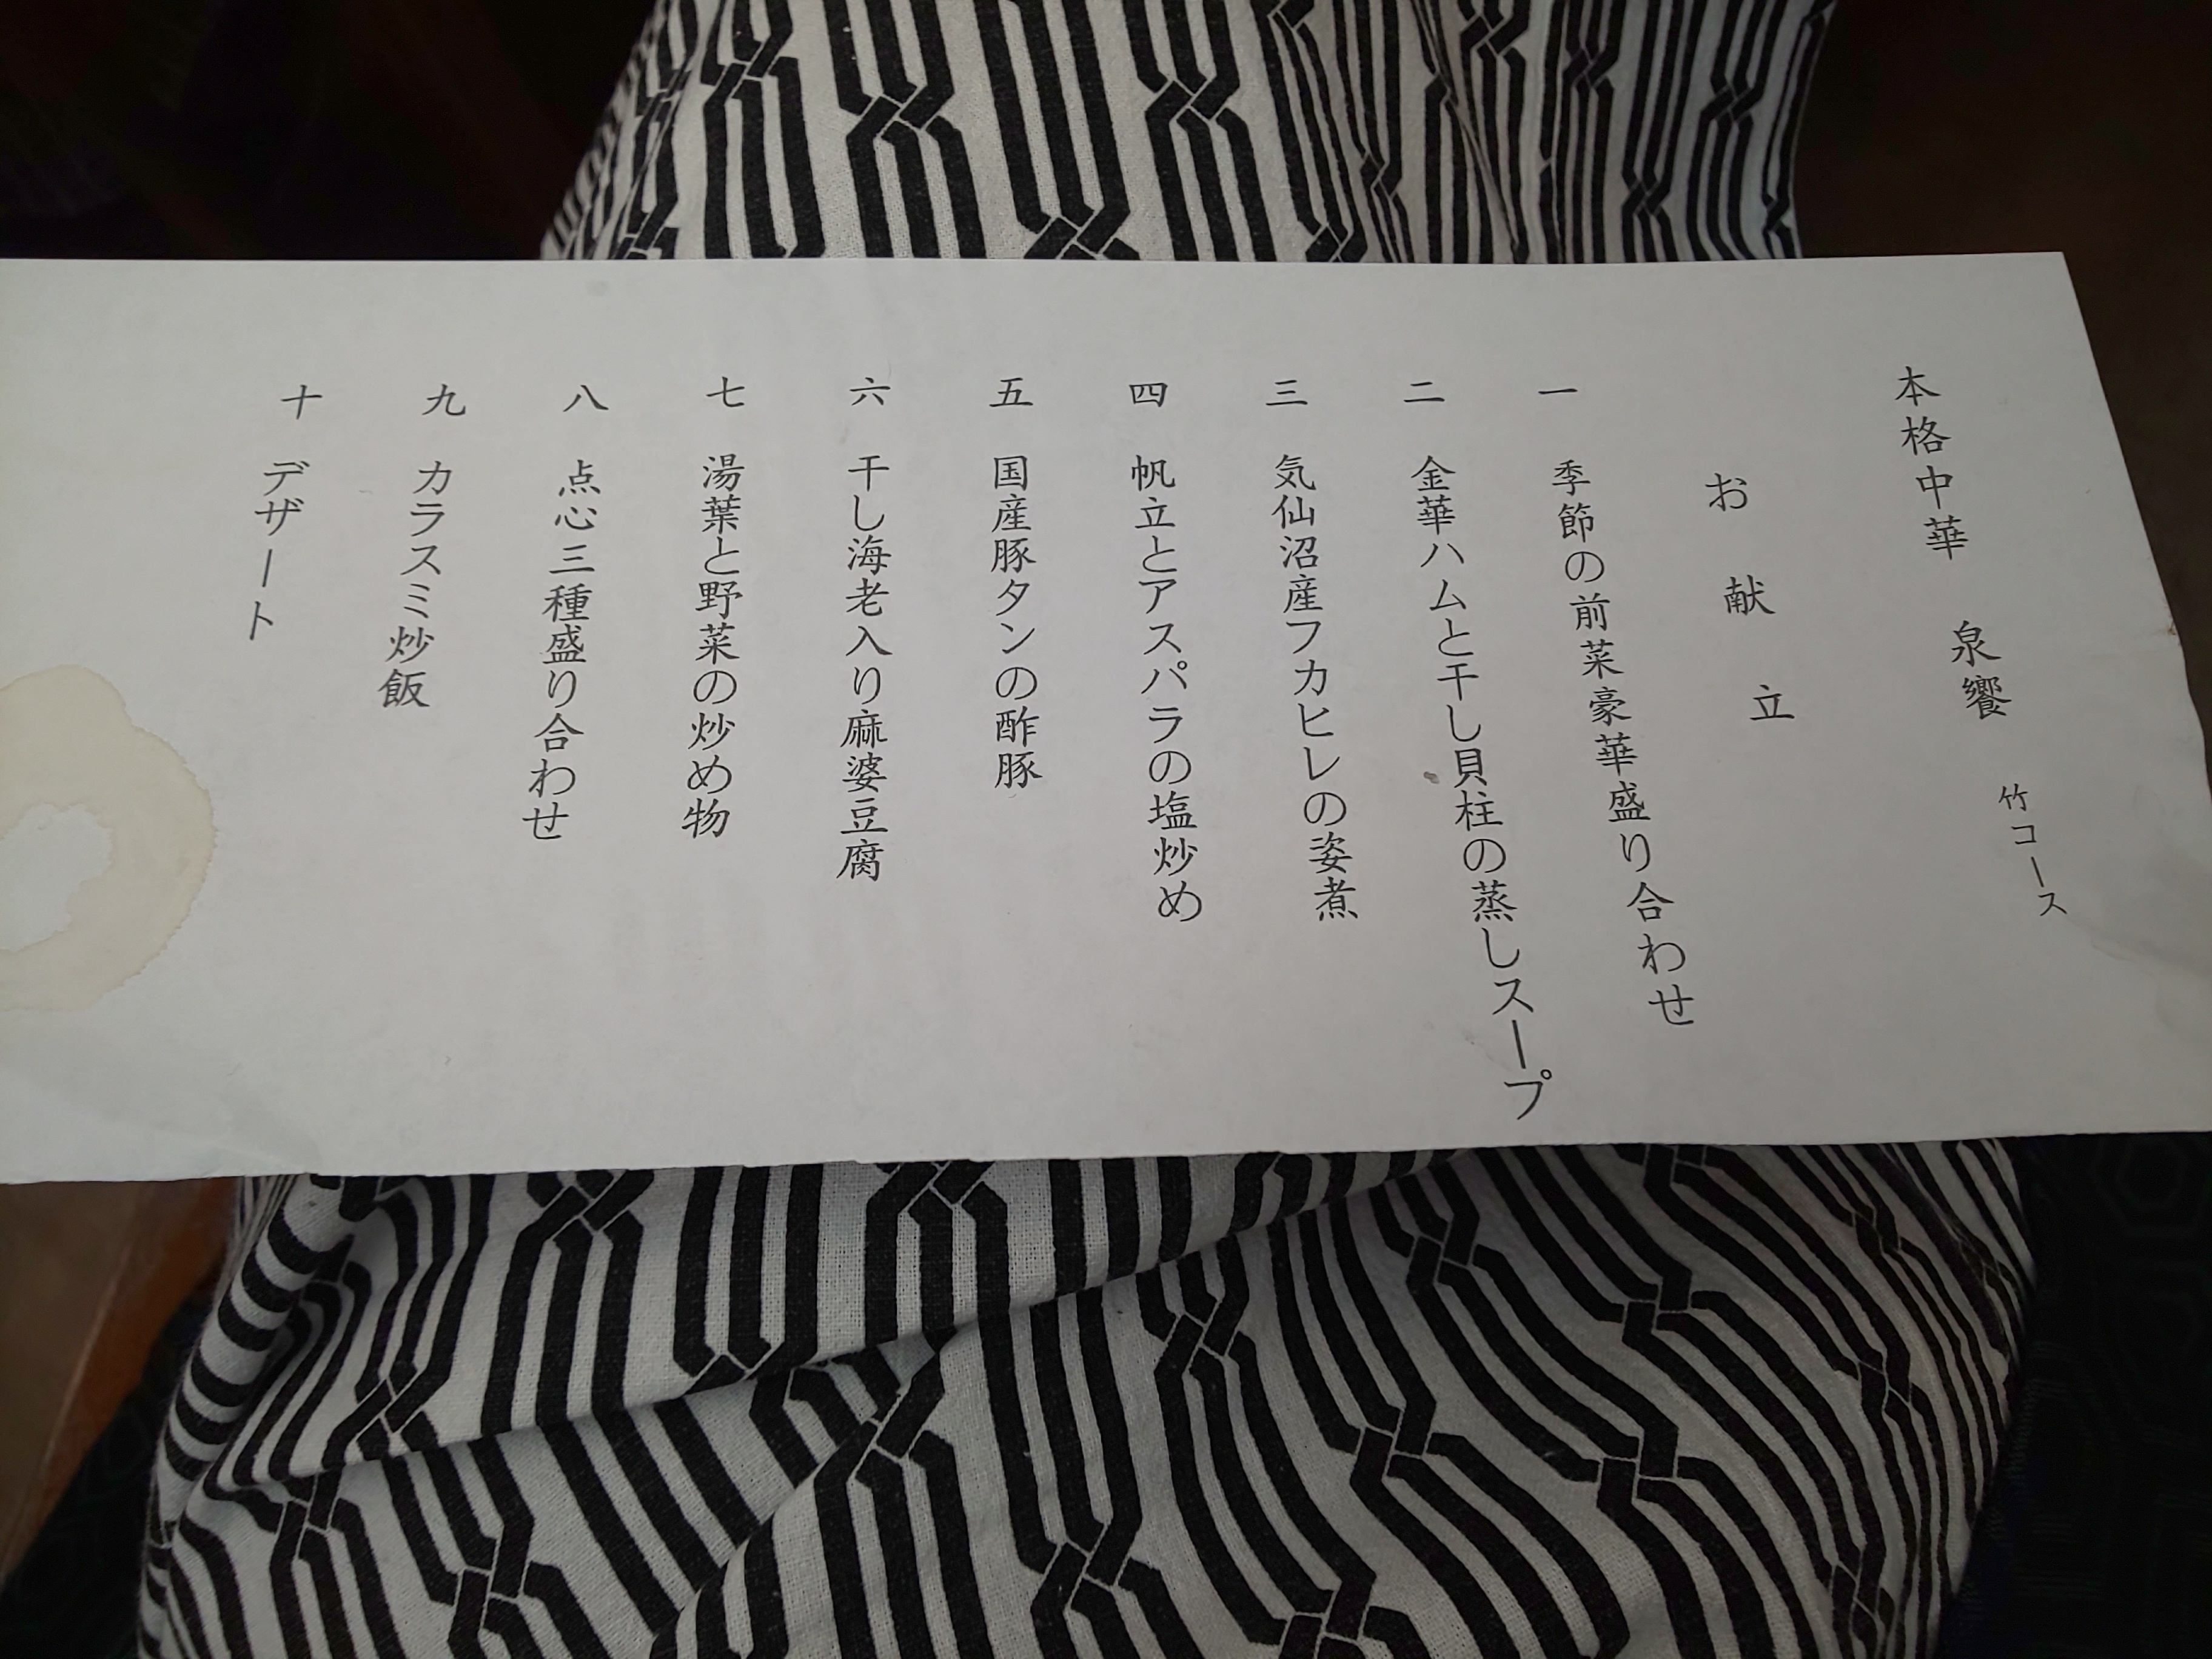 本格中華 泉饗 竹コース
お献立
一 季節の前菜豪華盛り合わせ
二 金華ハムと干し貝柱の蒸しスープ
三 気仙沼産フカヒレの姿煮
四 帆立とアスパラの塩炒め
五 国産豚タンの酢豚
六 干し海老入り麻婆豆腐
七 湯葉と野菜の炒め物
八 点心三種盛り合わせ
九 カラスミ炒飯
十 デザート